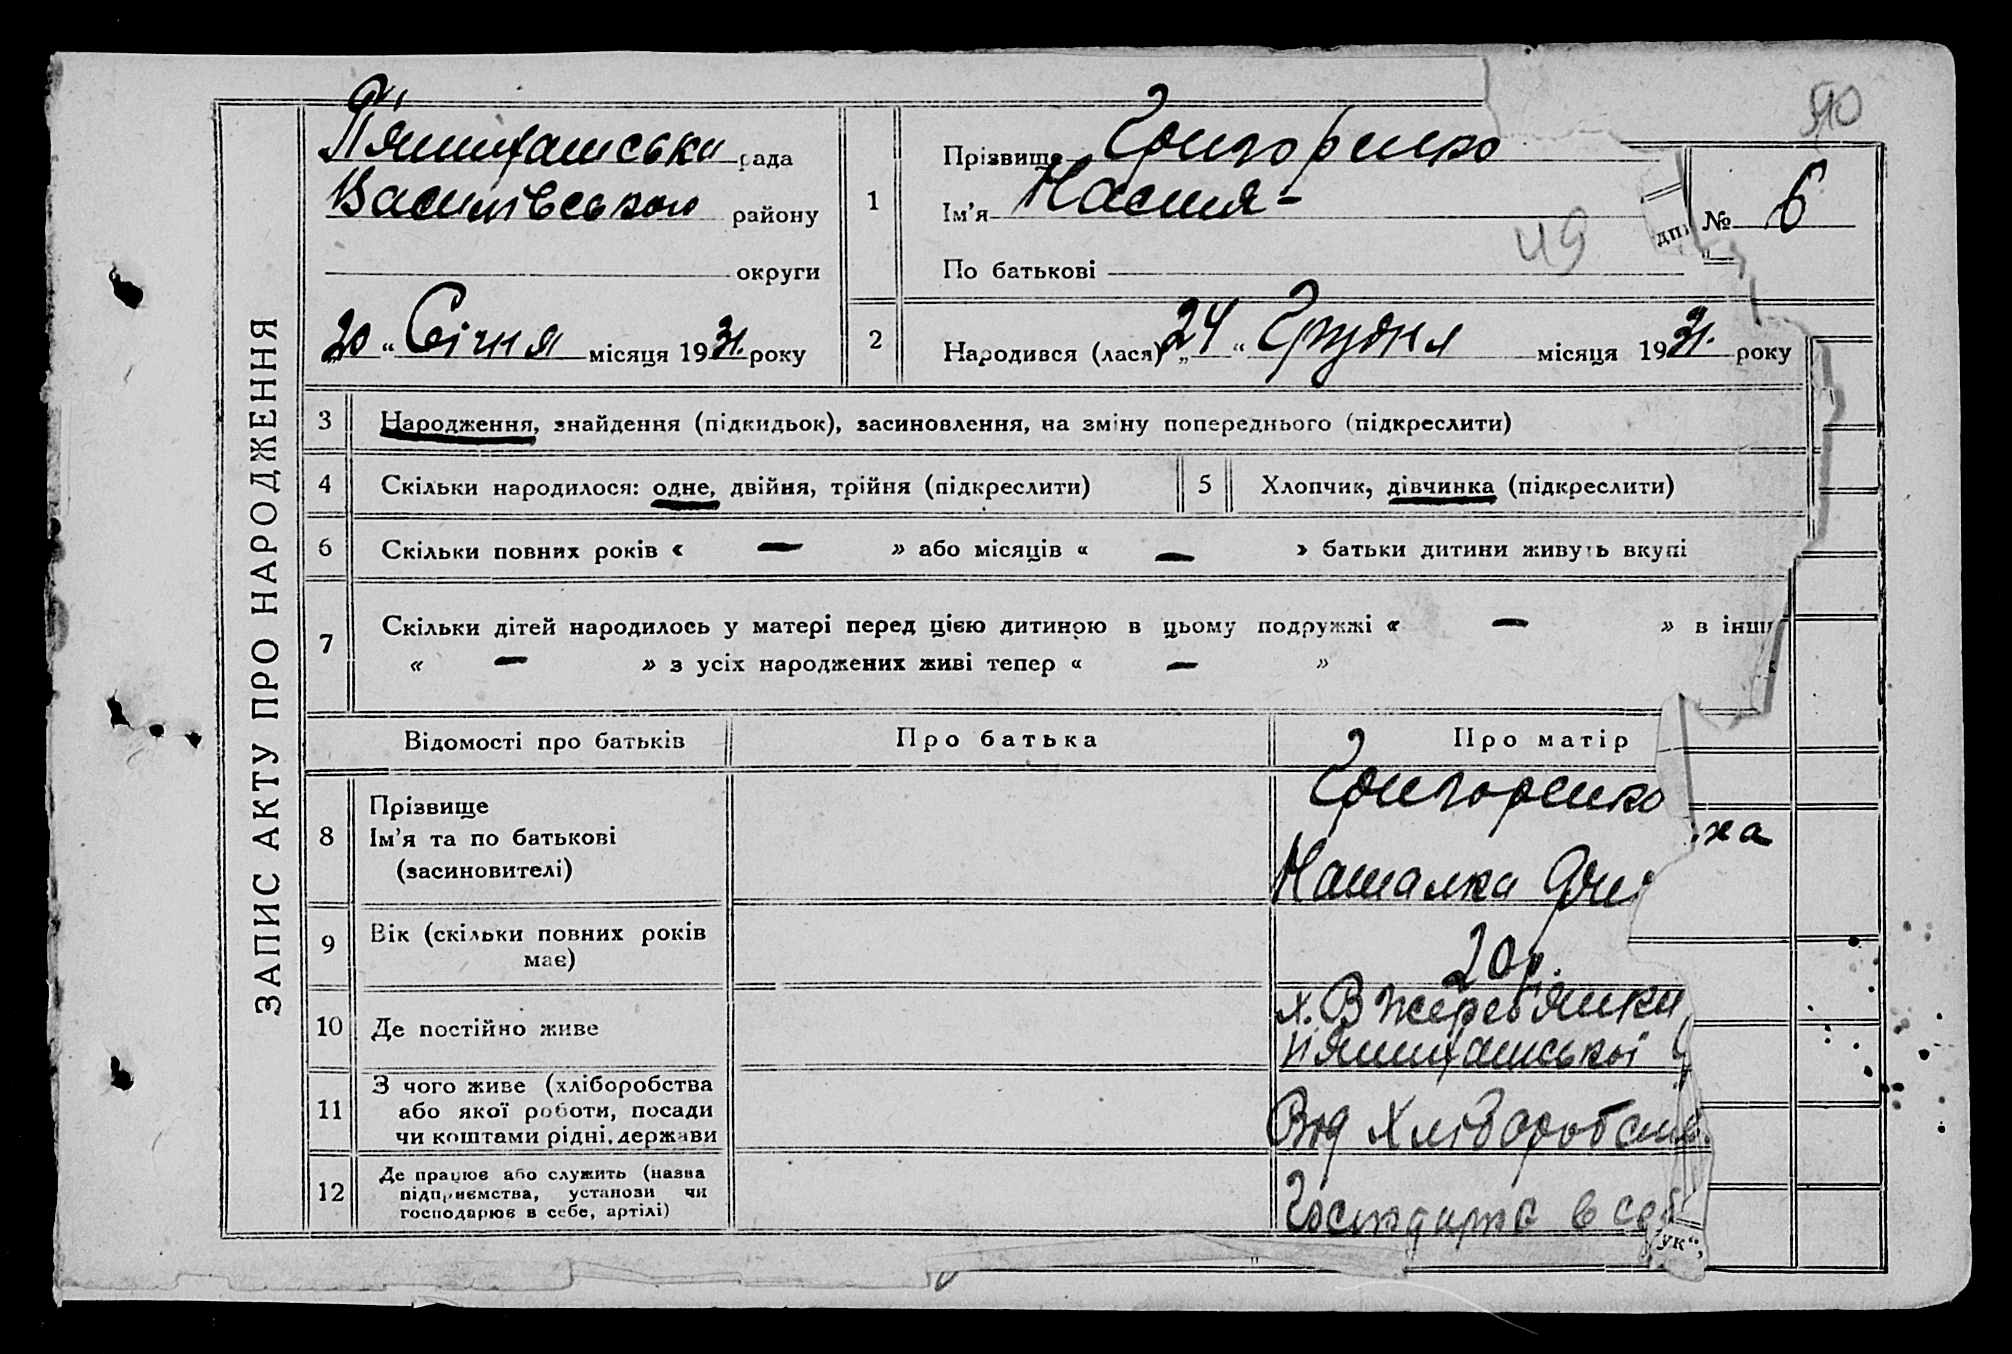 ЗАПИС АКТУ ПРО НАРОДЖЕННЯ
П'ятихатська рада
Василівського району
округи
20 " Січня місяця 1931. року
1
Прізвище Григоренко
Ім'я Настя -
По батькові
49
№ 6
2
Народився (лася) „ 24 " Грудня місяця 1931. року
3 Народження, знайдення (підкидьок), засиновлення, на зміну попереднього (підкреслити)
4 Скільки народилося: одне, двійня, трійня (підкреслити)
5 Хлопчик, дівчинка (підкреслити)
6 Скільки повних років « — » або місяців « — » батьки дитини живуть вкупі
7 Скільки дітей народилось у матері перед цією дитиною в цьому подружжі « — » в інш
« — » з усіх народжених живі тепер « — »
Відомості про батьків
Про батька
Про матір
8
Прізвище
Ім'я та по батькові
(засиновителі)
Григоренко
Наталка
ха
9 Вік (скільки повних років
має)
20 р.
10 Де постійно живе
х. В Жереб'янки
П'ятихатської
11
З чого живе (хліборобства
або якої роботи, посади
чи коштами рідні, держави
Від Хліборобств
12
Де працює або служить (назва
підприємства, установи чи
господарює в себе, артілі)
Господарює в себ
ук",